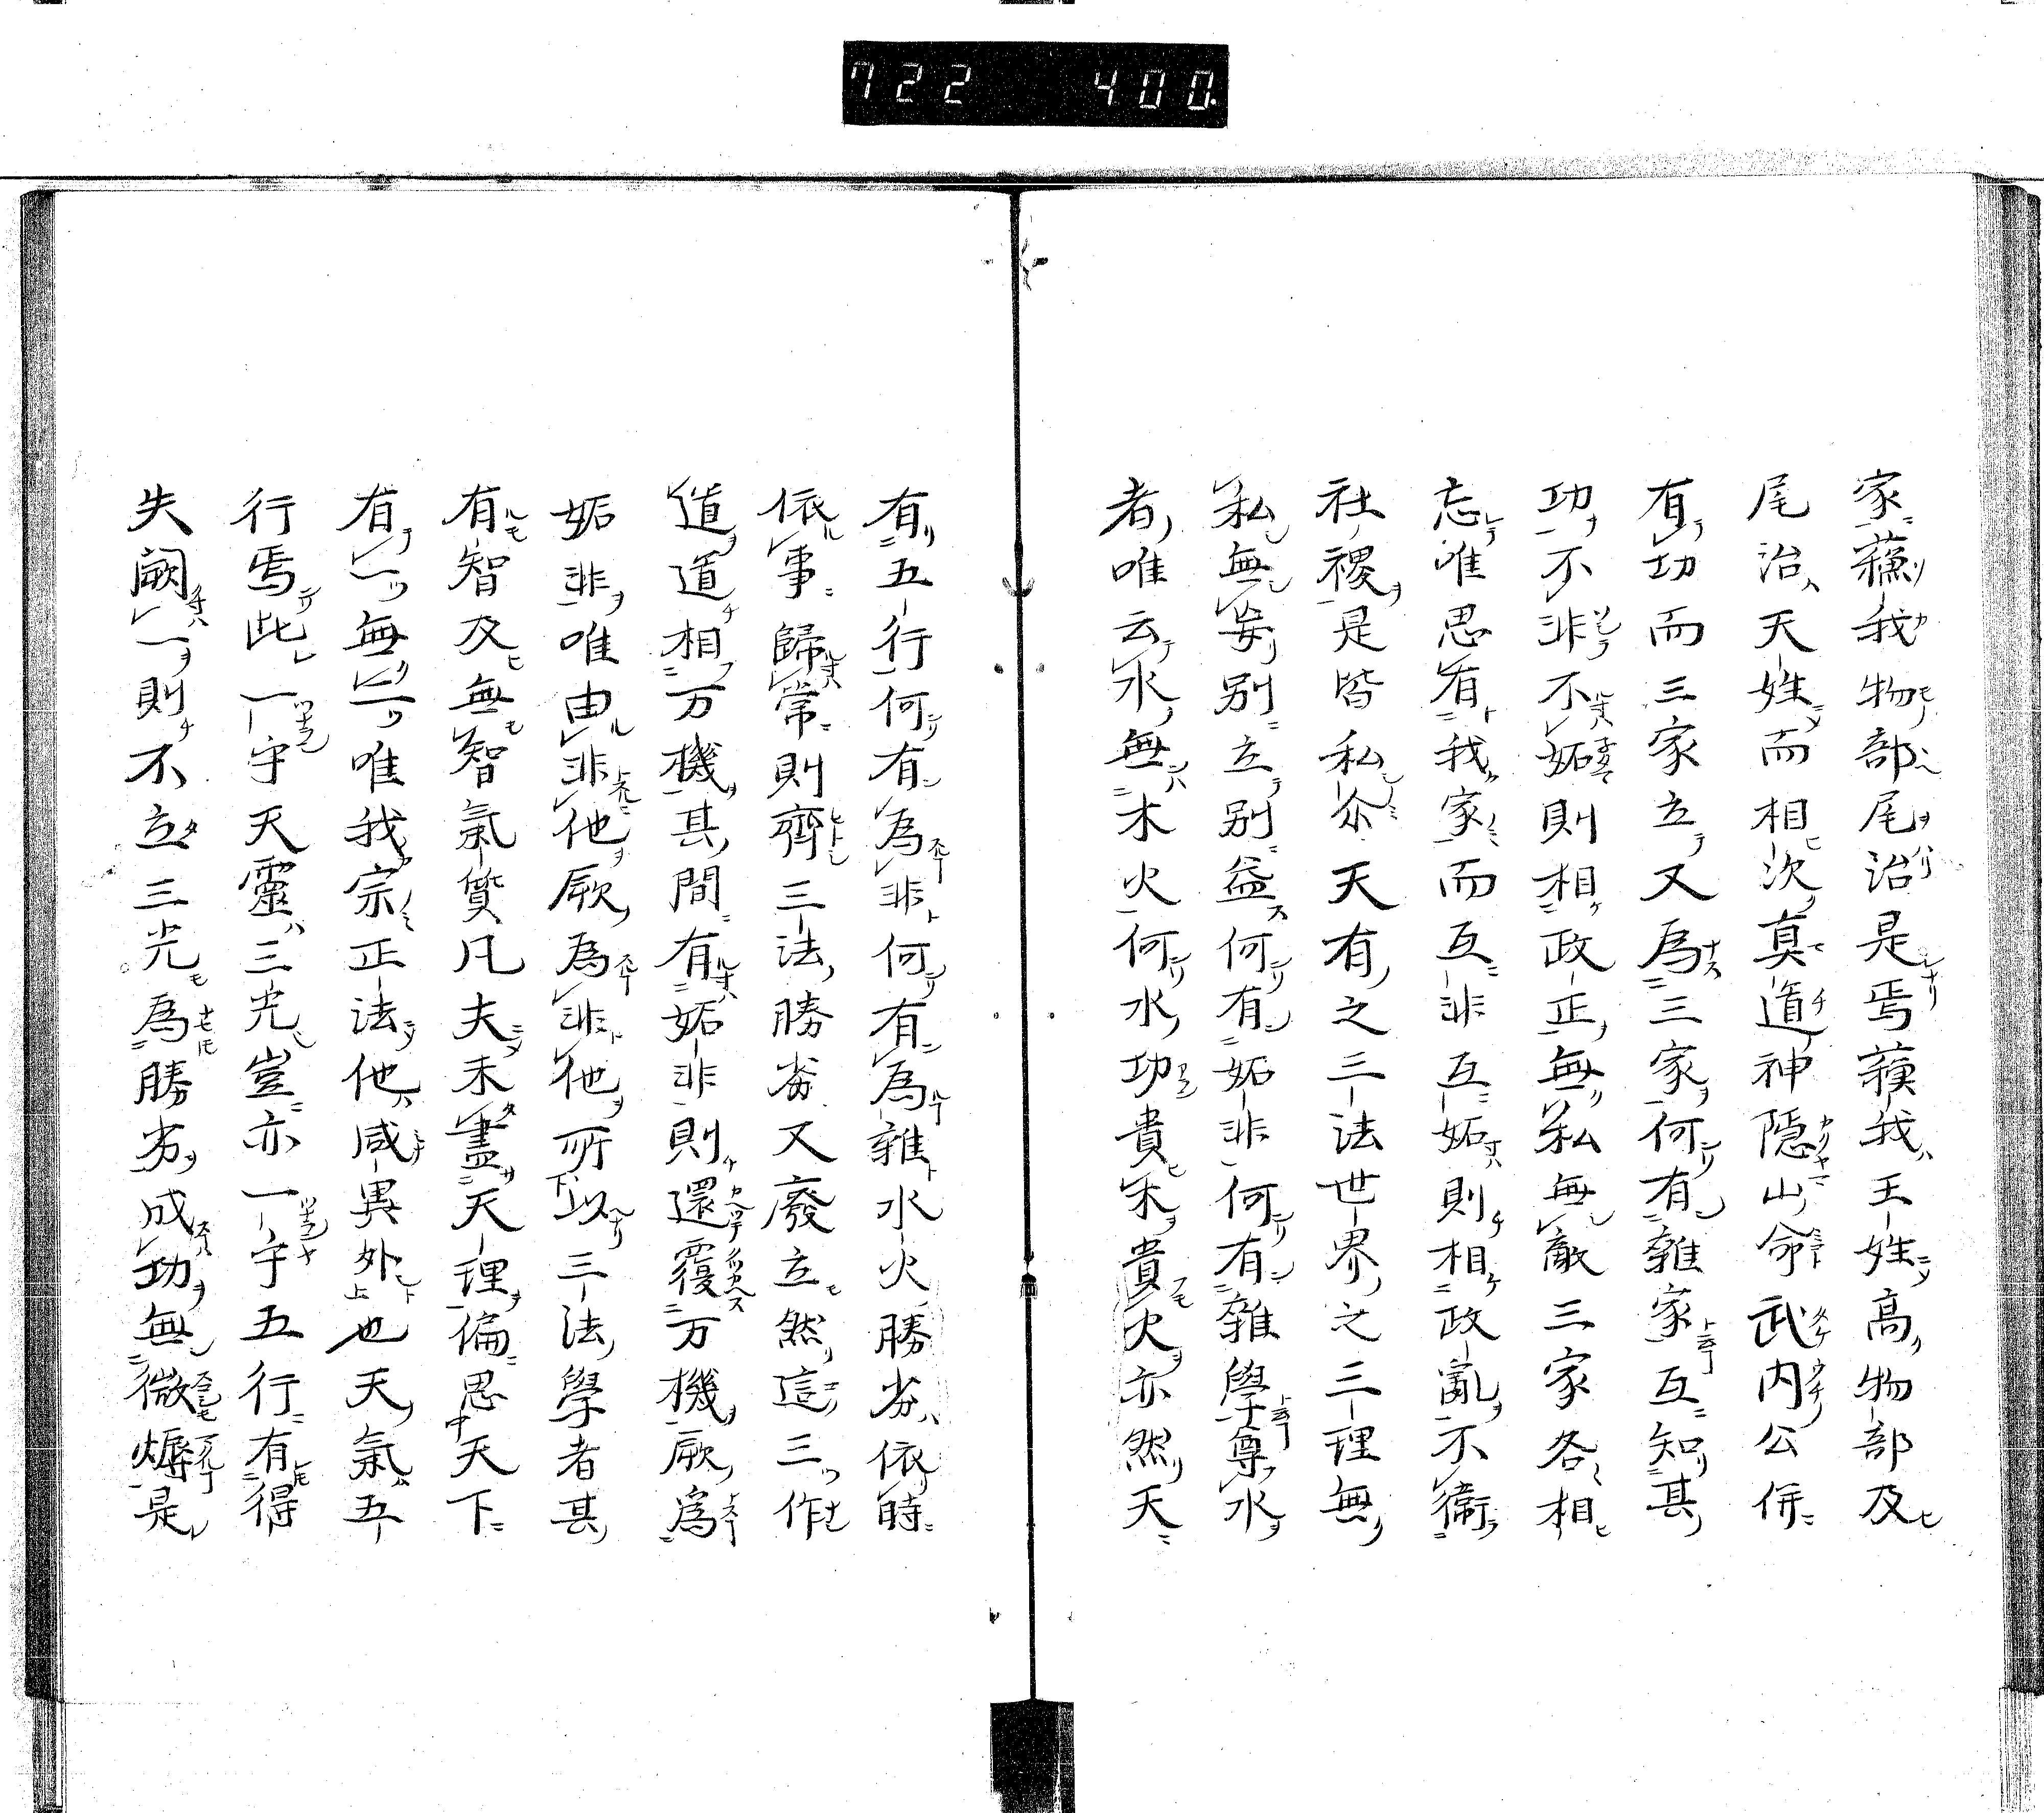 722 400.
家蘓我物部尾治是焉蘓我王姓高物部及
尾治天姓而相次真道神隱山命武内公併
有功而三家立又為三家何有雜家互知其
功不非不妬則相政正無私無敵三家各相
忘唯思有我家而互非互妬則相政亂不衞
社禝是皆私尒天有之三法世界之三理無
私無妄別立別益何有妬非何有雜學尊水
者唯云水無木火何水功貴木貴火亦然天
有五行何有為非何有為雜水火勝劣依時
依事歸常則齊三法勝劣又廢立然這三作
道道相万機其間有妬非則還覆万機厥為
妬非唯由非他厥為非他所以三法學者其
有智及無智氣質凡夫未盡天理偏思天下
有一無二唯我宗正法他咸異外也天氣五
行焉此一守天靈三光豈亦一守五行有得
失闕一則不立三光為勝劣成功無微㷮是